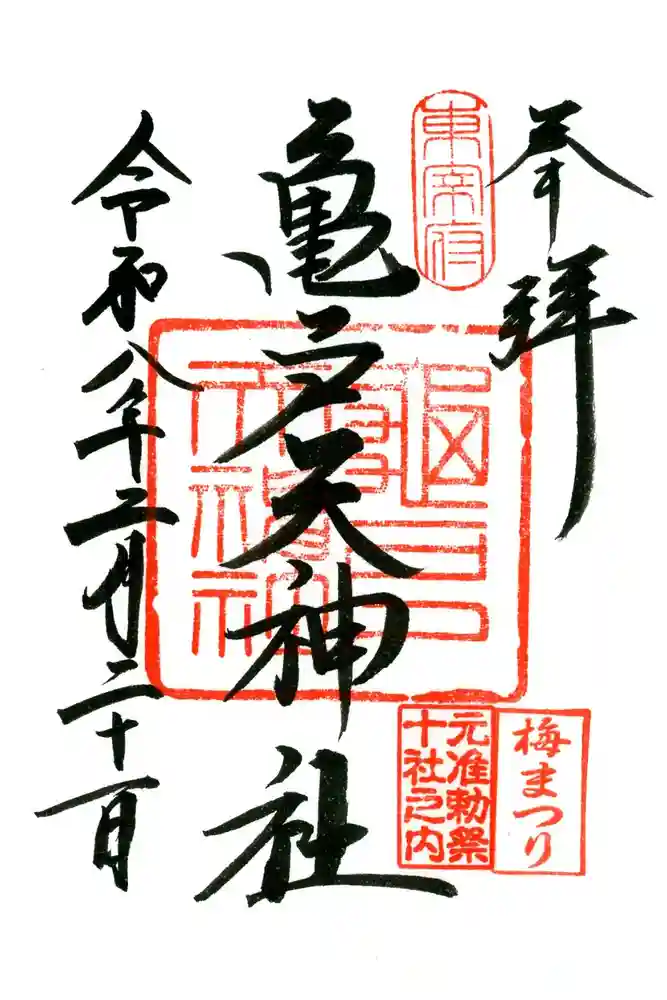 奉拝
東宰府
亀戸天神社
元准勅祭
十社之内
梅まつり
令和八年二月二十一日